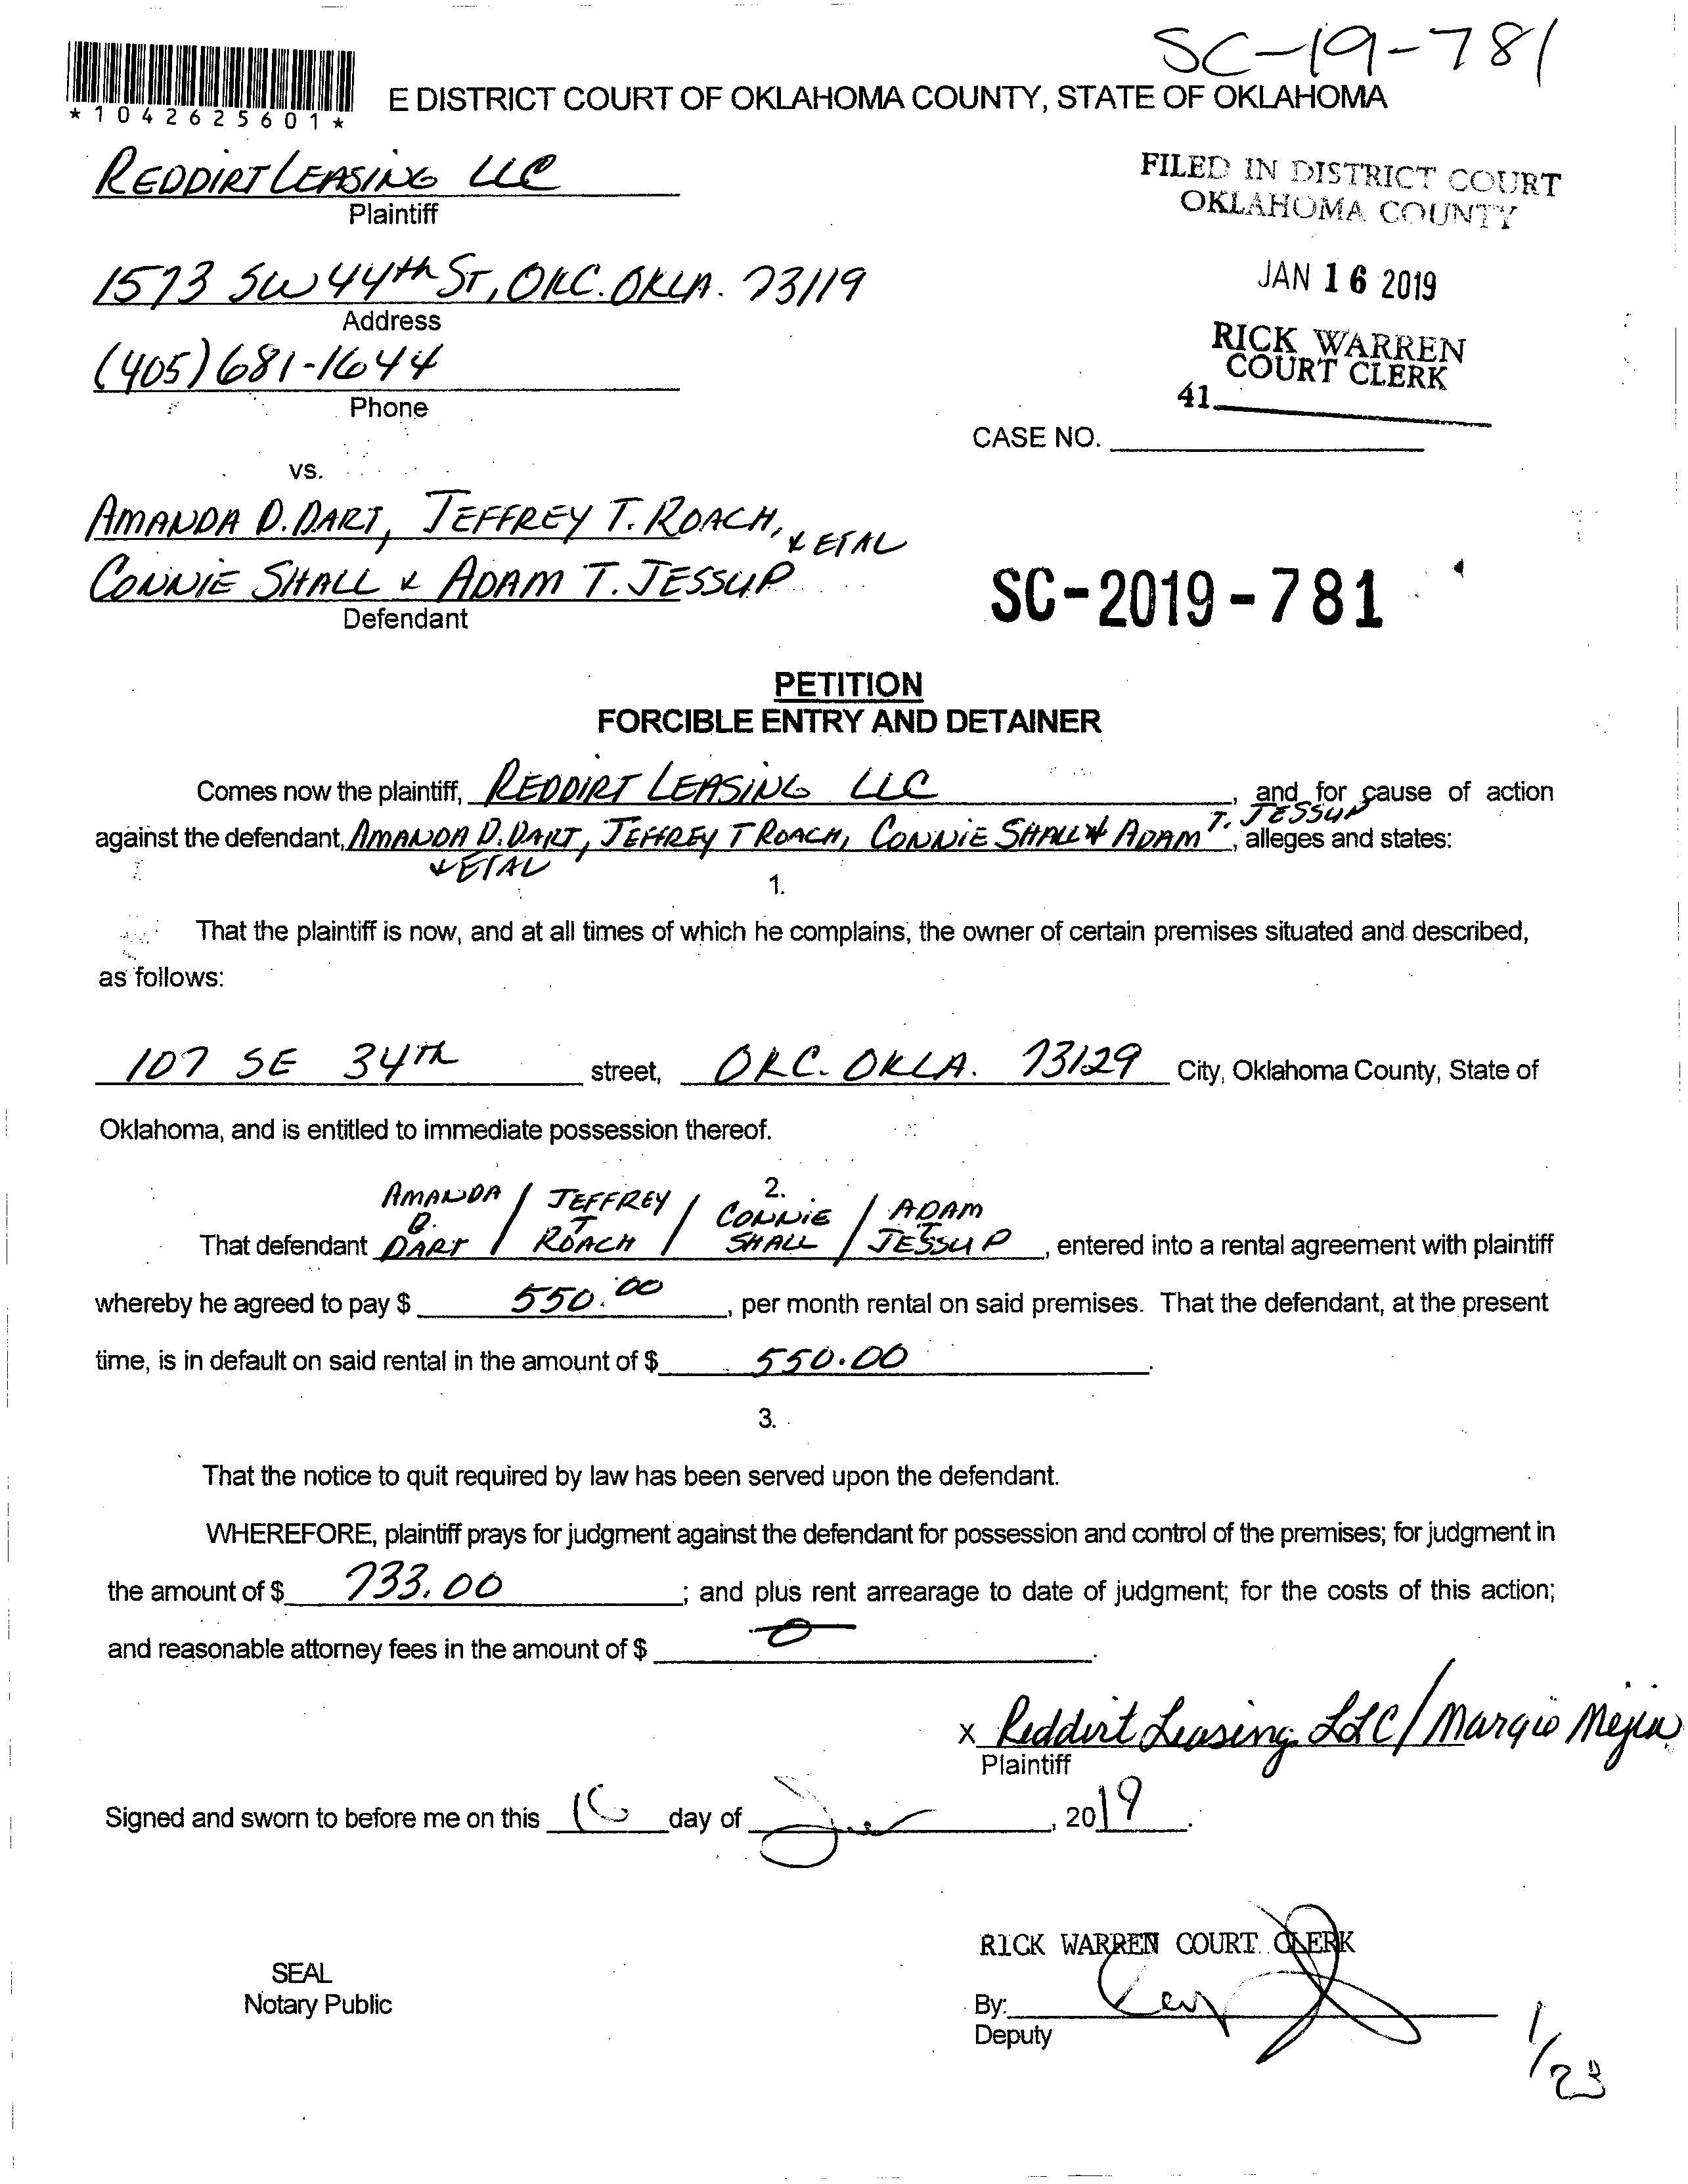 SC-19-781
*1042625601*
E DISTRICT COURT OF OKLAHOMA COUNTY, STATE OF OKLAHOMA
REDDIRT LEASING LLC
Plaintiff
FILED IN DISTRICT COURT
OKLAHOMA COUNTY
1573 SW 44th ST, OKC. OKLA. 73119
Address
JAN 16 2019
(405) 681-1644
Phone
RICK WARREN
COURT CLERK
41
CASE NO.
vs.
AMANDA D. DART, JEFFREY T. ROACH, & ETAL
CONNIE SHALL & ADAM T. JESSUP
Defendant
SC-2019-781
PETITION
FORCIBLE ENTRY AND DETAINER
Comes now the plaintiff, REDDIRT LEASING LLC, and for cause of action
against the defendant, AMANDA D. DART, JEFFREY T ROACH, CONNIE SHALL & ADAM T. JESSUP, alleges and states:
& ETAL
1.
That the plaintiff is now, and at all times of which he complains, the owner of certain premises situated and described,
as follows:
107 SE 34TH street, OKC. OKLA. 73129 City, Oklahoma County, State of
Oklahoma, and is entitled to immediate possession thereof.
2.
That defendant AMANDA D. DART / JEFFREY T ROACH / CONNIE SHALL / ADAM T JESSUP, entered into a rental agreement with plaintiff
whereby he agreed to pay $ 550.00, per month rental on said premises. That the defendant, at the present
time, is in default on said rental in the amount of $ 550.00.
3.
That the notice to quit required by law has been served upon the defendant.
WHEREFORE, plaintiff prays for judgment against the defendant for possession and control of the premises; for judgment in
the amount of $ 733.00; and plus rent arrearage to date of judgment; for the costs of this action;
and reasonable attorney fees in the amount of $ 0.
x Reddirt Leasing LLC / Margie Mejia
Plaintiff
Signed and sworn to before me on this 16 day of , 2019.
RICK WARREN COURT CLERK
SEAL
Notary Public
By:
Deputy
1/23